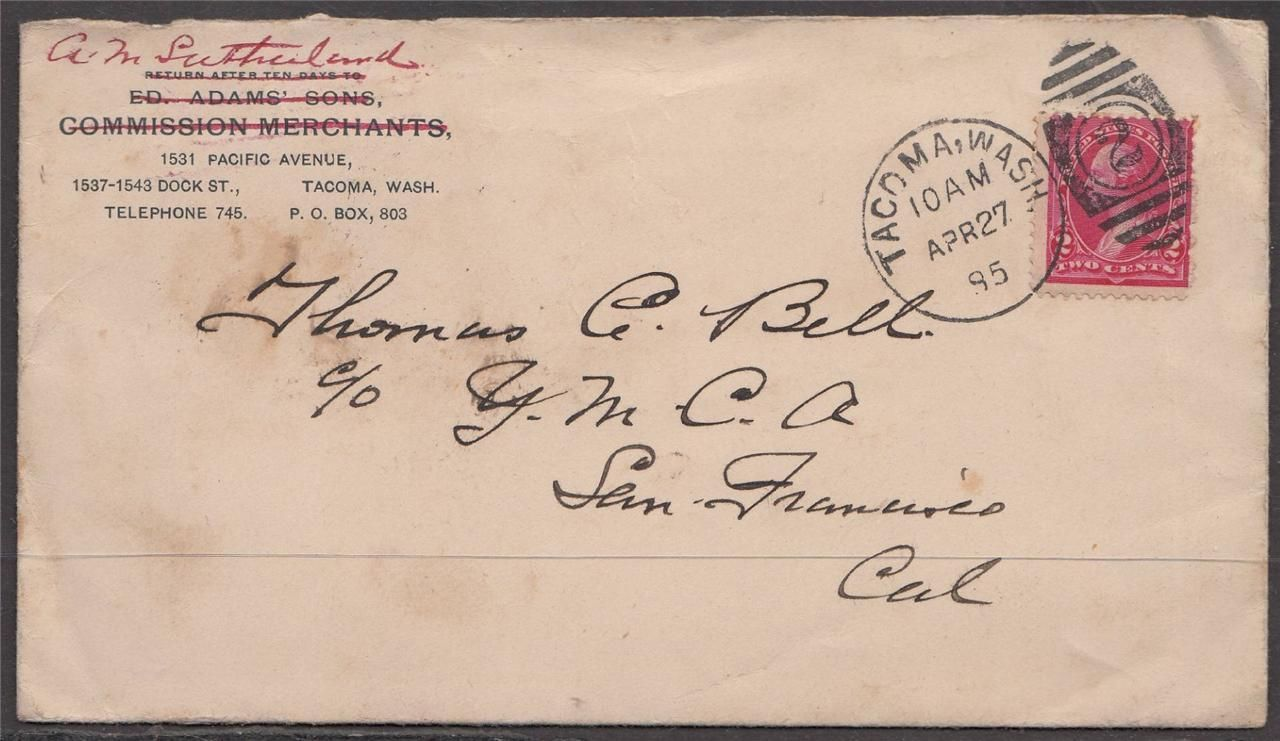 A. M. Sutherland
RETURN AFTER TEN DAYS TO
ED. ADAMS' SONS,
COMMISSION MERCHANTS,
1531 PACIFIC AVENUE,
1537-1543 DOCK ST., TACOMA, WASH.
TELEPHONE 745. P. O. BOX, 803
TACOMA, WASH.
10 AM
APR 27
95
2
2 2
TWO CENTS
Thomas C. Bell.
c/o Y. M. C. A
San Francisco
Cal